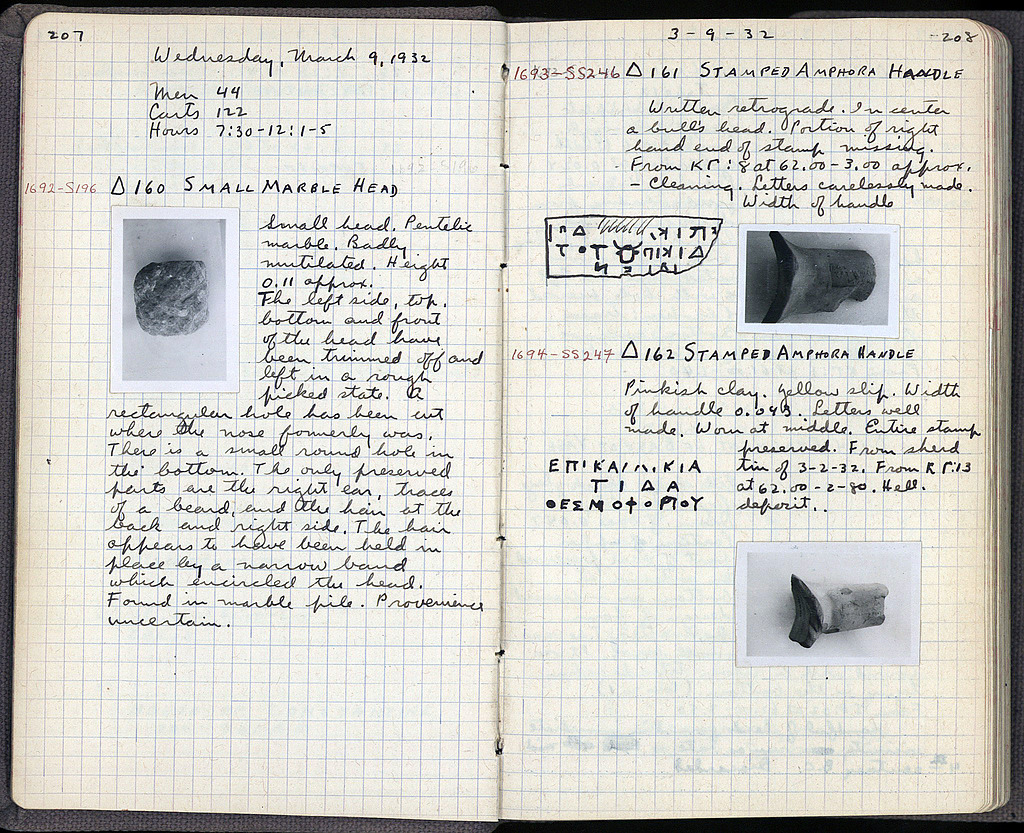 207
Wednesday, March 9, 1932
Men 44
Carts 122
Hours 7:30-12:1-5
1692-S196 Δ 160 SMALL MARBLE HEAD
Small head. Pentelic
marble. Badly
mutilated. Height
0.11 approx.
The left side, top,
bottom and front
of the head have
been trimmed off and
left in a rough
picked state. A
rectangular hole has been cut
where the nose formerly was.
There is a small round hole in
the bottom. The only preserved
parts are the right ear, traces
of a beard, and the hair at the
back and right side. The hair
appears to have been held in
place by a narrow band
which encircled the head.
Found in marble pile. Provenience
uncertain.
3-9-32
208
1693-SS246 Δ 161 STAMPED AMPHORA HANDLE
Written retrograde. In center
a bull's head. Portion of right
hand end of stamp missing.
From ΚΓ:8 at 62.00-3.00 approx.
- Cleaning. Letters carelessly made.
Width of handle
1694-SS247 Δ 162 STAMPED AMPHORA HANDLE
Pinkish clay. Yellow slip. Width
of handle 0.043. Letters well
made. Worn at middle. Entire stamp
preserved. From sherd
tin of 3-2-32. From ΚΓ:13
at 62.00-2-80. Hell.
deposit..
ΤΙΔΑ
ΘΕΣΜΟΦΟΡΙΟΥ